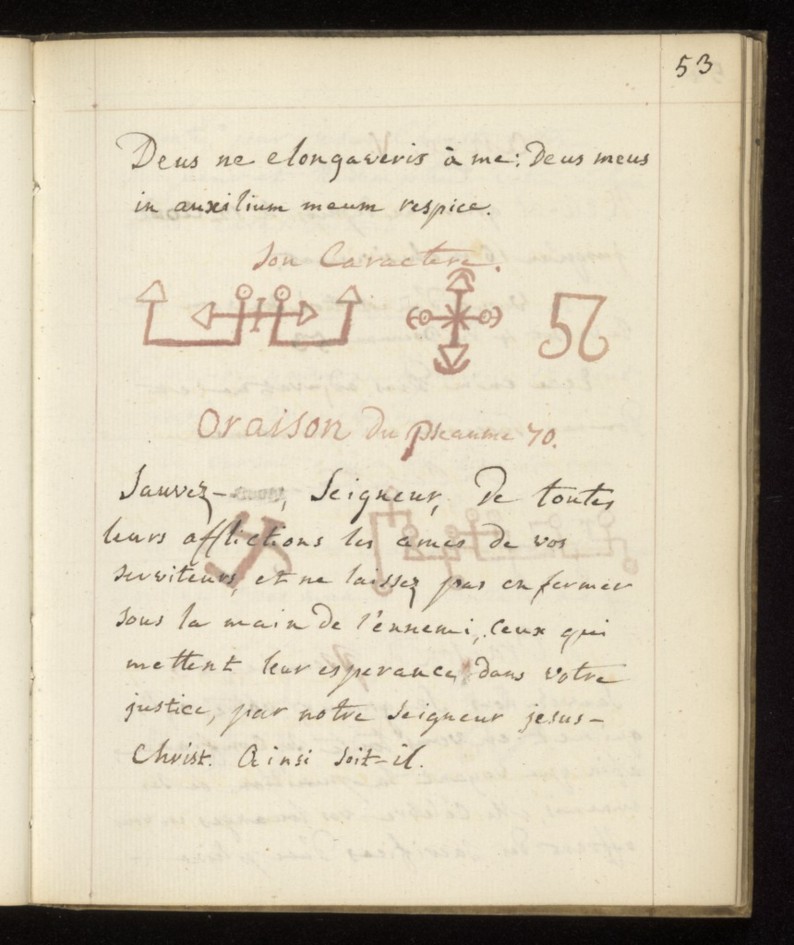 53
Deus ne elongaveris à me: Deus meus
in auxilium meum respice.
Son Caractere.
Oraison du pseaume 70.
Sauvez-, Seigneur, De toutes
leurs afflictions les ames de vos
serviteurs, et ne laissez pas enfermer
sous la main De l'ennemi, Ceux qui
mettent leur esperance dans votre
justice, par notre Seigneur jesus-
Christ. Ainsi soit-il.